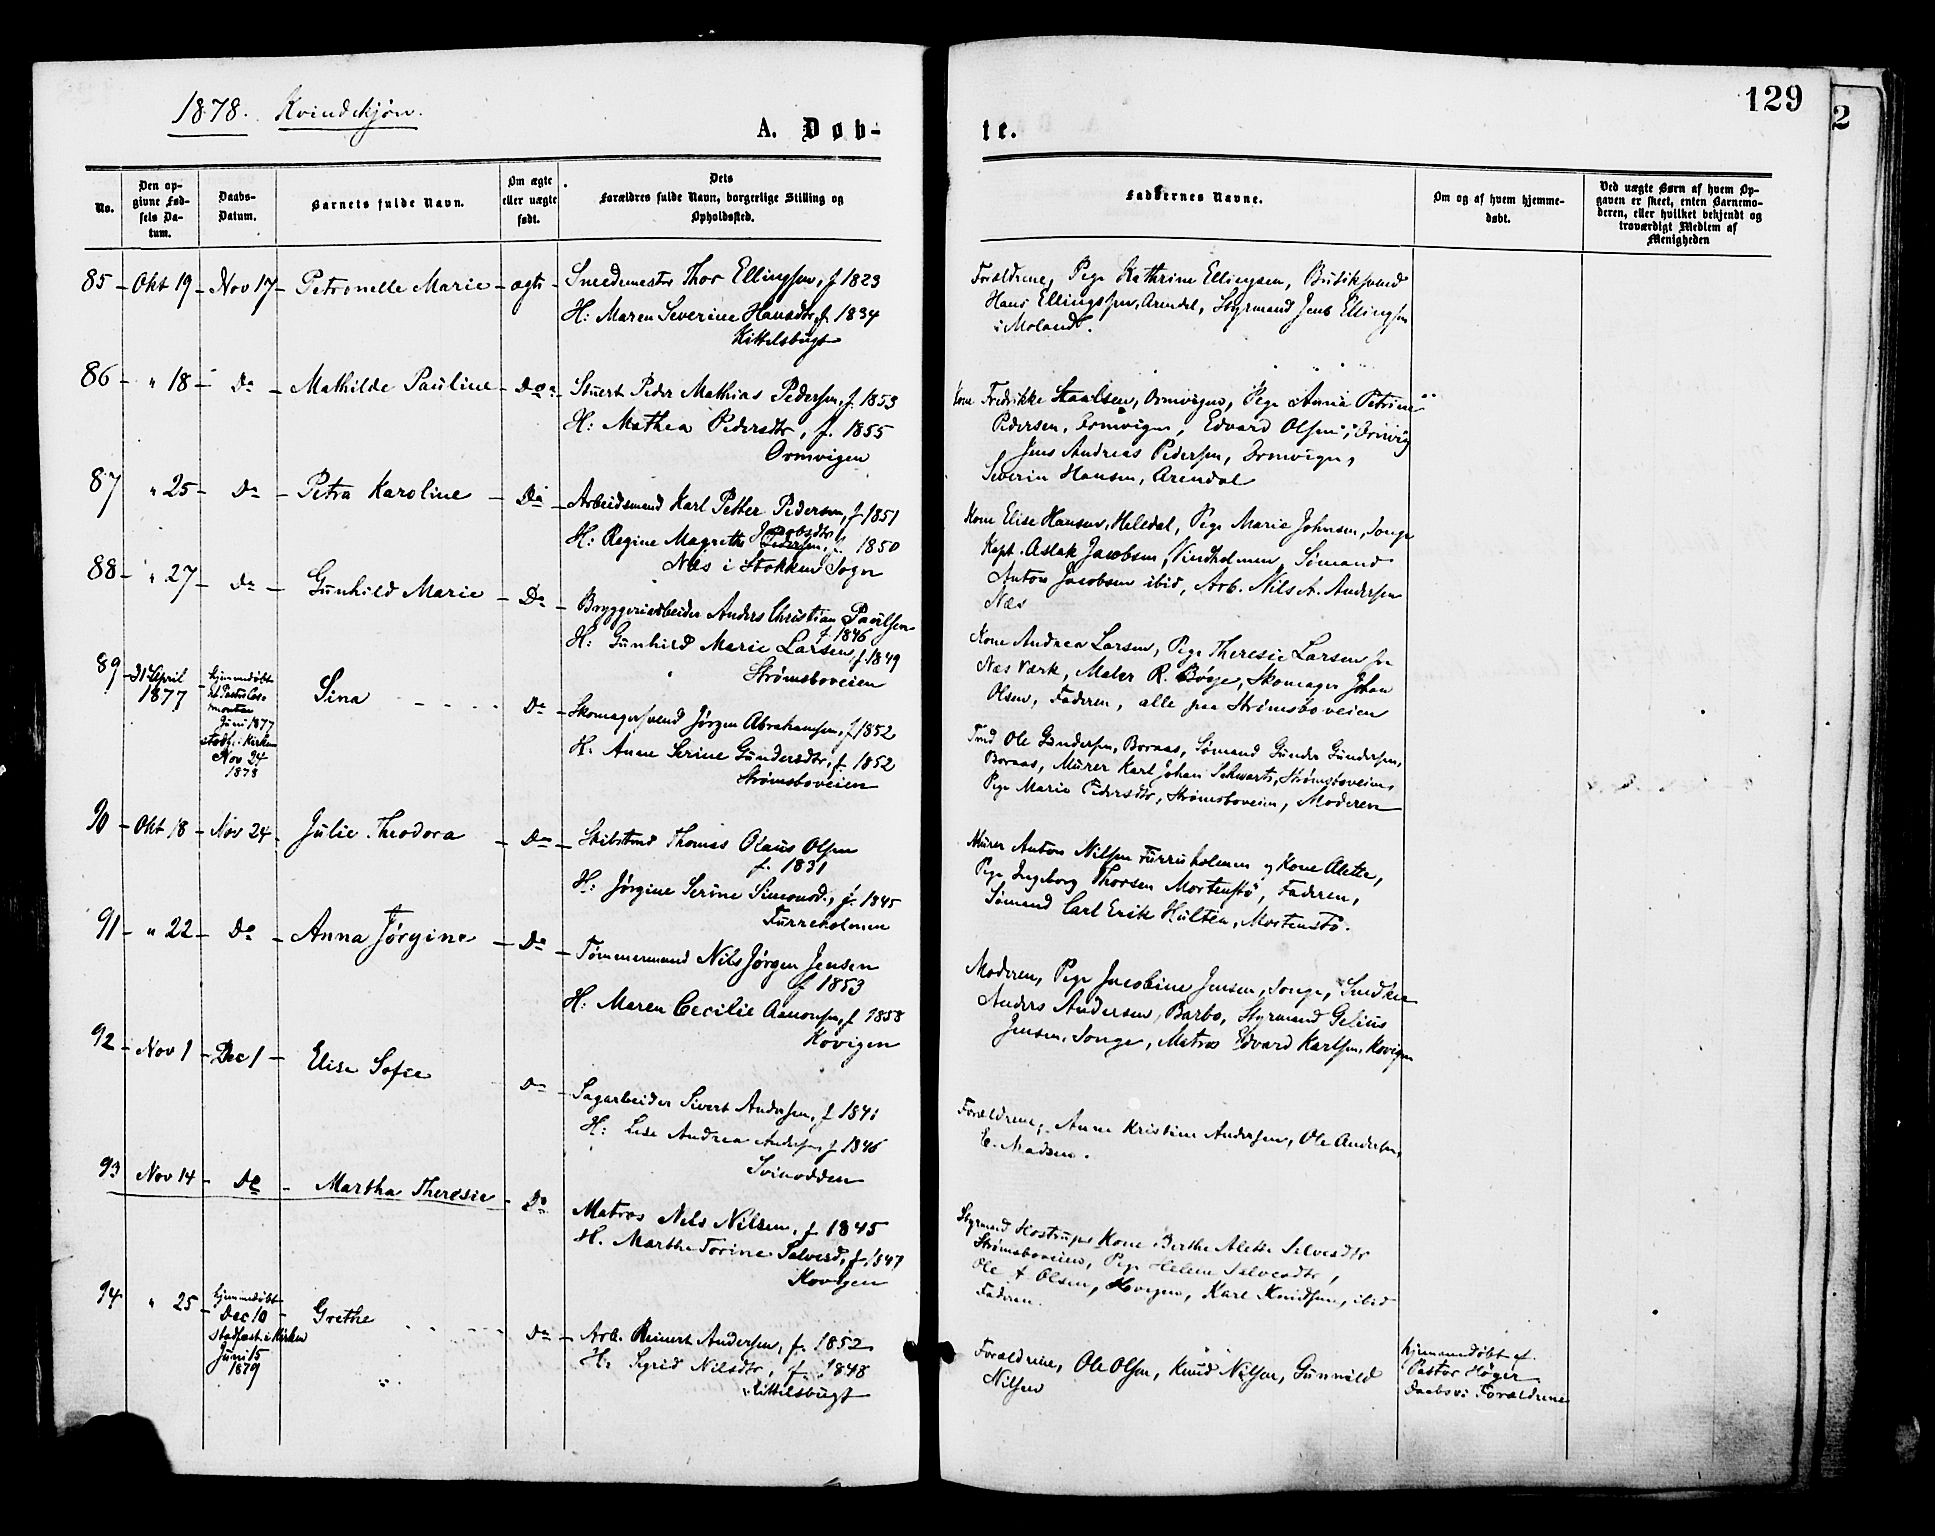 1878. Kvindekjøn.
A. Døb-
No.
Den op-
givne Fød-
sels Da-
tum.
Daabs-
Datum.
Barnets fulde Navn.
Om ægte
eller uægte
født.
Dets
Forældres fulde Navn, borgerlige Stilling og
Opholdssted.
85 Okt 19 Nov 17 Petronelle Marie ægte Snedkemester Thor Ellingsen, f 1823
H: Maren Severine Hansdtr, f. 1834
Kittelsbugt
86 " 18 Do Mathilde Pauline Do Stuert Peder Mathias Pedersen, f. 1853
H: Mathea Pedersdtr, f. 1855
Ormvigen
87 " 25 Do Petra Karoline Do Arbeidsmand Karl Petter Pedersen, f 1851
H: Regine Magrethe Jacobsdtr f. 1850
Næs i Stokken Sogn
88 " 27 Do Gunhild Marie Do Bryggeriarbeider Anders Christian Paulsen
f. 1846
H: Gunhild Marie Larsen, f 1849
Strømsboveien
89 31 April
1877
hjemmedøbt
Juni 1877
stadf. i Kirken
Nov 24
1878
Sina Do Skomagersvend Jørgen Abrahamsen, f 1852
H: Anne Serine Gundersdtr, f. 1852
Strømsboveien
90 Okt 18 Nov 24 Julie Theodora Do Skibstmd Thomas Olaus Olsen
f. 1831
H: Jørgine Serine Simonsd., f. 1845
Furreholmen
91 " 22 Do Anna Jørgine Do Tømmermand Nils Jørgen Jensen
f 1853
H: Maren Cecilie Aanonsen, f 1858
Kovigen
92 Nov 1 Dec 1 Elise Sofie Do Sagarbeider Sivert Andersen, f 1841
H: Lise Andrea Andersen f 1846
Svinodden
93 Nov 14 Do Martha Theresie Do Matros Nils Nilsen, f 1845
H. Marthe Torine Salvesd, f. 1847
Kovigen
94 " 25 hjemmedøbt
Dec 10
stadfæst i Kirken
Juni 15
1879
Grethe Do Arb. Reinert Andersen, f. 1852
H: Sigrid Nilsdtr, f. 1848
Kittelsbugt
129
2
te.
Faddernes Navne.
Om og af hvem hjemme-
døbt.
Ved uægte Børn af hvem Op-
gaven er skeet, enten Barnemo-
deren, eller hvilket bekjendt og
troværdigt Medlem af
Menigheden
Forældrene, Pige Kathrine Ellingsen, Butiksvend
Hans Ellingsen, Arendal, Styrmand Jens Ellingsen
i Moland.
Kone Fredrikke Staalsen, Ormvigen, Pige Anna Petrine
Pedersen, Ormvigen, Edvard Olsen, Ormvig
Jens Andreas Pedersen, Ormvigen,
Severin Hansen, Arendal
Kone Elise Hansen, Heledal, Pige Marie Johnsen, Songe
Kapt. Aslak Jacobsen, Vindholmen, Sømand
Anton Jacobsen ibid, Arb. Nils A. Andersen
Næs
Kone Andrea Larsen, Pige Theresie Larsen fra
Næs Værk, Maler R. Bøye, Skomager Johan
Olsen, Faderen, alle paa Strømsboveien
Tmd Ole Gundersen, Boraas, Sømand Gunder Gundersen,
Boraas, Murer Karl Johan Schwartz, Strømsboveien,
Pige Marie Pedersdtr, Strømsboveien, Moderen
Murer Anton Nilsen Furreholmen og Kone Alette,
Pige Ingeborg Thorsen Mortenstø, Faderen,
Sømand Carl Erik Hulten, Mortenstø.
Moderen, Pige Jacobine Jensen, Songe, Snedker
Anders Andersen, Barbo, Styrmand Gelius
Jensen, Songe, Matros Edvard Karlsen, Kovigen
Forældrene, Anne Kristine Andersen, Ole Andersen,
E. Madsen.
Styrmand Hostrups Kone, Berthe Alette Salvesdtr
Strømsboveien, Pige Helene Salvesdtr,
Ole T Olsen, Kovigen, Karl Knudsen, ibid
Faderen.
Forældrene, Ole Olsen, Knud Nilsen, Gunnild
Nilsen
hjemmedøbt af
Pastor Høyer
Daabsv: Forældrene